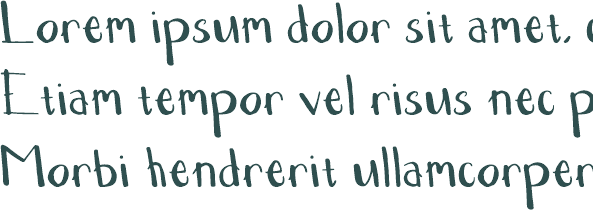 Lorem ipsum dolor sit amet, c
Etiam tempor vel risus nec p
Morbi hendrerit ullamcorper